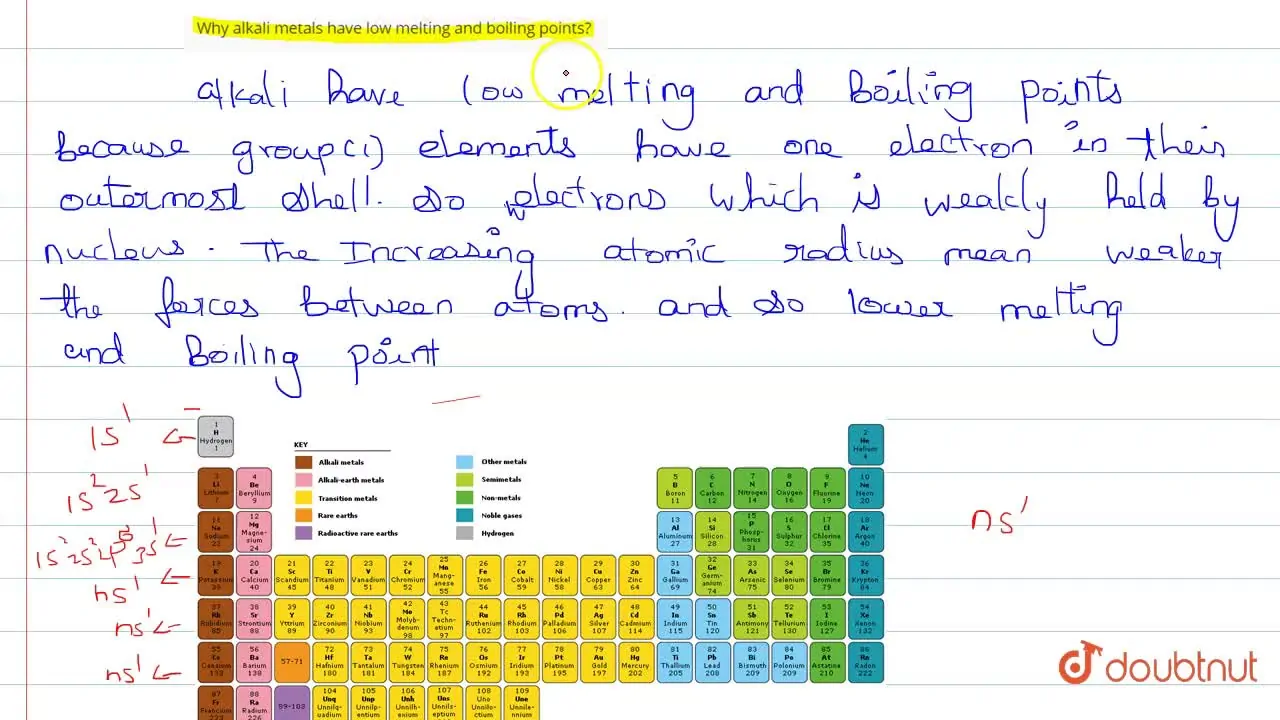 Why alkali metals have low melting and boiling points?
alkali have low melting and Boiling points
because group(1) elements have one electron in their
outermost shell. so electrons which is weakly held by
nucleus. The Increasing atomic radius mean weaker
the forces between atoms. and so lower melting
and Boiling point
1s¹
1s² 2s¹
ns¹
ns¹
ns¹
ns¹
KEY
Alkali metals
Alkali-earth metals
Transition metals
Rare earths
Radioactive rare earths
Other metals
Semimetals
Non-metals
Noble gases
Hydrogen
1 H Hydrogen 1
2 He Helium 4
3 Li Lithium 7
4 Be Beryllium 9
5 B Boron 11
6 C Carbon 12
7 N Nitrogen 14
8 O Oxygen 16
9 F Fluorine 19
10 Ne Neon 20
11 Na Sodium 22
12 Mg Magne-sium 24
13 Al Aluminum 27
14 Si Silicon 28
15 P Phosp-horus 31
16 S Sulphur 32
17 Cl Chlorine 35
18 Ar Argon 40
19 K Potassium 39
20 Ca Calcium 40
21 Sc Scandium 45
22 Ti Titanium 48
23 V Vanadium 51
24 Cr Chromium 52
25 Mn Mang-anese 55
26 Fe Iron 56
27 Co Cobalt 59
28 Ni Nickel 58
29 Cu Copper 63
30 Zn Zinc 64
31 Ga Gallium 69
32 Ge Germ-anium 74
33 As Arsenic 75
34 Se Selenium 80
35 Br Bromine 79
36 Kr Krypton 84
37 Rb Rubidium 85
38 Sr Strontium 88
39 Y Yttrium 89
40 Zr Zirconium 90
41 Nb Niobium 93
42 Mo Molyb-denum 98
43 Tc Techn-etium 97
44 Ru Ruthenium 102
45 Rh Rhodium 103
46 Pd Palladium 106
47 Ag Silver 107
48 Cd Cadmium 114
49 In Indium 115
50 Sn Tin 120
51 Sb Antimony 121
52 Te Tellurium 130
53 I Iodine 127
54 Xe Xenon 132
55 Cs Caesium 133
56 Ba Barium 138
57-71
72 Hf Hafnium 180
73 Ta Tantalum 181
74 W Tungsten 184
75 Re Rhenium 187
76 Os Osmium 192
77 Ir Iridium 193
78 Pt Platinum 195
79 Au Gold 197
80 Hg Mercury 202
81 Ti Thallium 205
82 Pb Lead 208
83 Bi Bismuth 209
84 Po Polonium 209
85 At Astatine 210
86 Rn Radon 222
87 Fr Francium 223
88 Ra Radium 226
89-103
104 Unq Unnilq-uadium
105 Unp Unnilp-entium
106 Unh Unnilh-exium
107 Uns Unnils-eptium
108 Uno Unnilo-ctium
109 Une Unnile-nnium
doubtnut